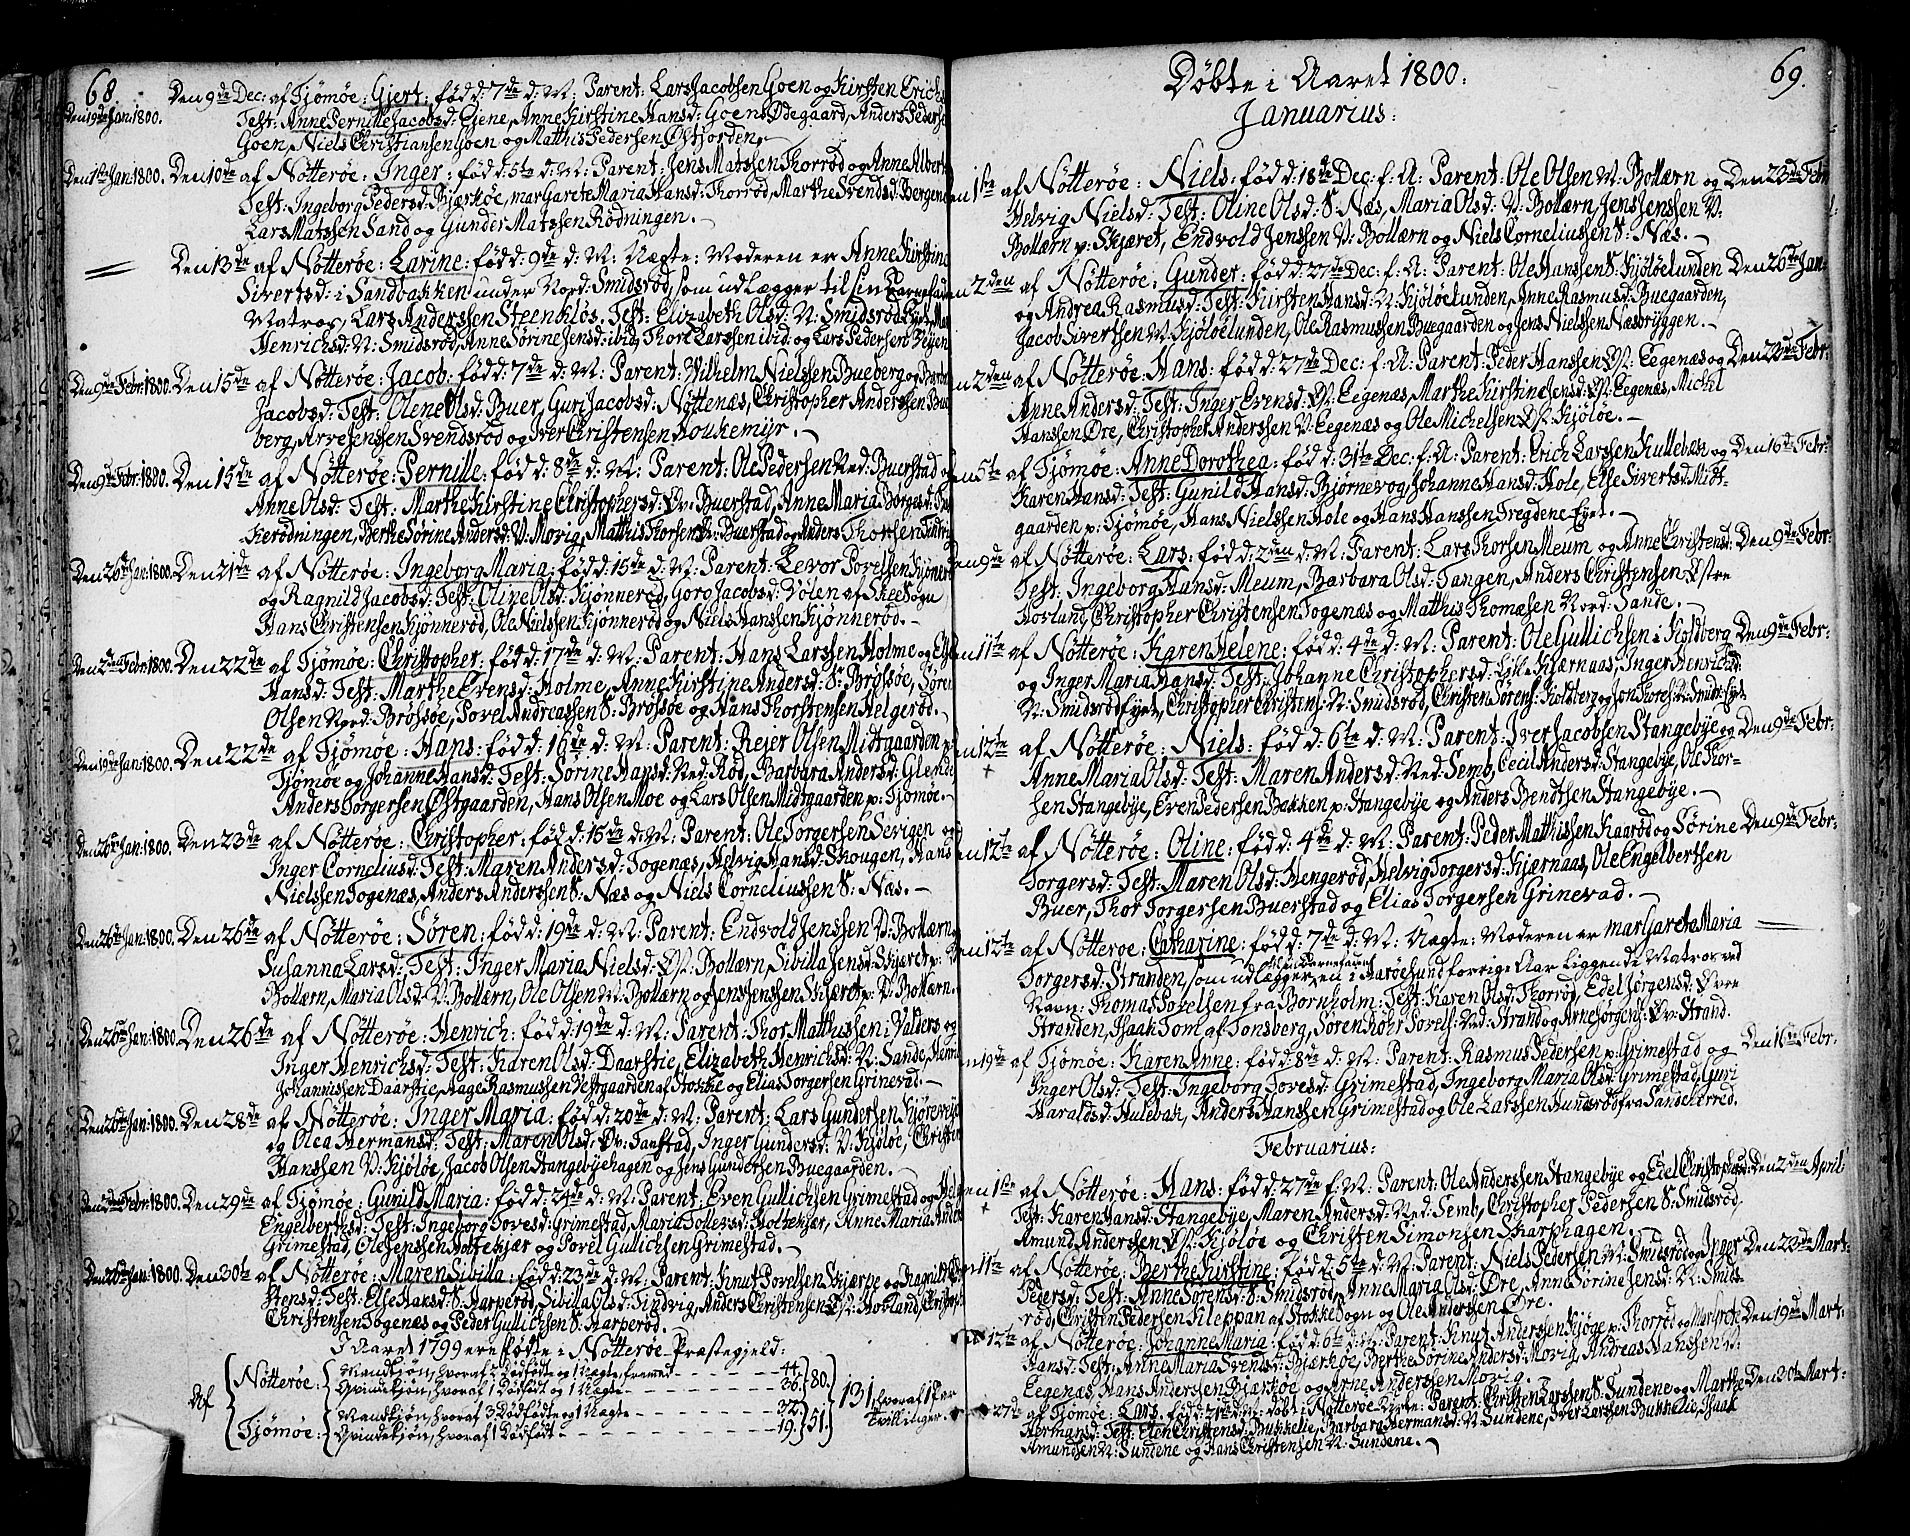 68
Den 9de Dec: af Tjömöe: Gjert: född: 7de d: M: Parent: Lars Jacobsen Goen og Kirsten Erichs
Den 19de Jan: 1800. Test: Anne Pernille Jacobsd: Ejene, Anne Kirstine Hansd: Goens Ødegaard, Anders Peders
Goen, Niels Christiansen Goen og Matthis Pedersen Østjorden.
Den 1ste Jan: 1800. Den 10de af Nötteröe: Inger: född: 5te d: M: Parent: Jens Matssen Thorröd og Anne Alberts
Test: Ingeborg Pedersd: Bjærköe, margarete Maria Hansd: Thorröd, Marthe Svendsd: Bergene
Lars Matssen Sand og Gunder Matssen Rödningen.
Den 13de af Nötteröe: Larine: född: 9de d: M: Uægte: Moderen er Anne Kirstine
Sivertsd: i Sandbakken under Nord: Smidsröd, som udlægger til sin Barnefader
Matros, Lars Anderssen Steenklös. Test: Elizabeth Olsd: N: Smidsröd
Henrichsd: N: Smidsröd, Anne Sörine Jensd: ibid, Thore Larssen ibid: og Lars Pedersen
Den 9de Febr: 1800. Den 15de af Nötteröe: Jacob: född: 7de d: M: Parent: Wilhelm Nielssen Bueberg og
Jacobsd: Test: Olene Olsd: Buer, Guri Jacobsd: Nöttenæs, Christopher Anderssen Bue
berg, Arve Jenssen Svendsröd og Iver Christensen Houkemyr.
Den 9de Febr: 1800. Den 15de af Nötteröe: Pernille: född: 8de d: M: Parent: Ole Pedersen Ned: Buerstad og
Anne Olsd: Test: Marthe Kirstine Christophersd: Öv: Buerstad, Anne Maria Börgesd:
Kerödningen, Berthe Sörine Andersd: V: Morig, Matthis Thorsen N: Buerstad og Anders Thorsen
Den 26de Jan: 1800. Den 21de af Nötteröe: Ingeborg Maria: född: 15de d: M: Parent: Levor Povelsen Kjönneröd
og Ragnild Jacobsd: Test: Oline Olsd: Kjönneröd, Goro Jacobsd: Völen af Skee Sogn
Hans Christensen Kjönneröd, Ole Nielssen Kjönneröd og Niels Hanssen Kjönneröd.
Den 2den Febr: 1800. Den 22de af Tjömöe: Christopher: född: 17de d: M: Parent: Hans Larssen Holme og
Hansd: Test: Marthe Evensd: Holme, Anne Kirstine Andersd: S: Brössöe, Sören
Olsen Nord: Brössöe, Povel Andreassen S: Brössöe og Hans Thorstensen Helgeröd.
Den 19de Jan: 1800. Den 22de af Tjömöe: Hans: född: 16de d: M: Parent: Rejer Olsen Midtgaarden p:
Tjömöe og Johanne Hansd: Test: Sörine Hansd: Ned: Röd, Barbara Andersd: Glende
Anders Torgersen Østgaarden, Hans Olsen Moe og Lars Olsen Midtgaarden p: Tjömöe.
Den 26de Jan: 1800. Den 23de af Nötteröe: Christopher: född: 15de d: M: Parent: Ole Torgersen Sevigen og
Inger Corneliusd: Test: Maren Andersd: Togenæs, Helvig Hansd: Skougen, Hans
Nielssen Togenæs, Anders Anderssen S: Næs og Niels Corneliussen S: Næs.
Den 26de Jan: 1800. Den 26de af Nötteröe: Sören: född: 19de d: M: Parent: Endvold Jenssen V: Bollærn
Susanna Larsd: Test: Inger Maria Nielsd: Ø: Bollærn, Sibilla Jensd: Skjæret p: V:
Bollærn, Maria Olsd: V: Bollærn, Ole Olsen M: Bollærn og Jens Jenssen Skjæret p: V: Bollærn.
Den 26de Jan: 1800. Den 26de af Nötteröe: Henrich: född: 19de d: M: Parent: Thor Matthissen i Valders og
Inger Henrichsd: Test: Karen Olsd: Daarstie, Elizabeth Henrichsd: N: Sande,
Johannissen Daarstie, Aage Rasmussen Vestgaarden af Stokke og Elias Torgersen Grinevad.
Den 26de Jan: 1800. Den 28de af Nötteröe: Inger Maria: född: 20de d: M: Parent: Lars Gundersen Kjöreveye
og Olea Hermansd: Test: Maren Olsd: Öv: Taastad, Inger Gundersd: V: Kjölöe, Christen
Hanssen V: Kjölöe, Jacob Olsen Stangebyehagen og Jens Gundersen Buegaarden.
Den 2den Febr: 1800. Den 29de af Tjömöe: Gunild Maria: född: 24de d: M: Parent: Even Gullichsen Grimestad og
Engelberthsd: Test: Ingeborg Tovesd: Grimestad, Maria Tollevsd: Holtekjær, Anne Maria
Grimestad, Ole Jenssen Holtekjær og Povel Gullichsen Grimestad.
Den 26de Jan: 1800. Den 30te af Nötteröe: Maren Sibilla: född: 23de d: M: Parent: Knut Povelsen Skjærpe og Ragnild
Stensd: Test: Else Hansd: S: Harperöd, Sibilla Olsd: Tindvig, Anders Christensen Ø: Hovland,
Christensen Togenæs og Peder Gullichsen S: Harperöd.
I Aaret 1799 ere födte i Nötteröe Præstegjeld:
Af Nötteröe: Mandkjön, hvoraf 2 Dödfödte og 1 Uægte, fremed - - - 44.
Qvindekjön, hvoraf 1 Dödfödt og 1 Uægte - - - 36. 80.
131, hvoraf 1 Par Tvillinger.
Tjömöe: Mandkjön, hvoraf 3 Dödfödte og 1 Uægte - - - 32.
Qvindekjön, hvoraf 1 Dödfödt - - - 19. 51.
69.
Döbte i Aaret 1800:
Januarius:
Den 1ste af Nötteröe: Niels: född: 18de Dec: f: A: Parent: Ole Olsen M: Bollærn og Den 23de Febr:
Helvig Nielsd: Test: Oline Olsd: S: Næs, Maria Olsd: V: Bollærn, Jens Jenssen V:
Bollærn p: Skjæret, Endvold Jenssen V: Bollærn og Niels Corneliussen S: Næs.
Den 2den af Nötteröe: Gunder: född: 27de Dec: f: A: Parent: Ole Hanssen S: Kjölöelunden Den 26de Jan:
og Andrea Rasmusd: Test: Kirsten Hansd: N: Kjölöelunden, Anne Rasmusd: Buegaarden,
Jacob Sivertsen N: Kjölöelunden, Ole Rasmussen Buegaarden og Jens Nielssen Næsbryggen.
Den 2den af Nötteröe: Hans: född: 27de Dec: f: A: Parent: Peder Hanssen Ø: Eegenæs og Den 23de Febr:
Anne Andersd: Test: Inger Evensd: Ø: Eegenæs, Marthe Kirstine Jensd: Ø: Eegenæs, Michel
Hanssen Öre, Christopher Anderssen V: Eegenæs og Ole Michelsen Ø: Kjölöe.
Den 5te af Tjömöe: Anne Dorothea: född: 31te Dec: f: A: Parent: Erich Larssen Hullebak og Den 16de Febr:
Karen Hansd: Test: Gunild Hansd: Bjørnevog, Johanne Hansd: Hole, Else Sivertsd: Midt-
gaarden p: Tjömöe, Hans Nielssen Hole og Hans Hanssen Tregdene Eyet.
Den 9de af Nötteröe: Lars: född: 2den d: M: Parent: Lars Thorsen Meum og Anne Christensd: Den 9de Febr:
Test: Ingeborg Hansd: Meum, Barbara Olsd: Tangen, Anders Christensen Østre
Hovland, Christopher Christensen Togenæs og Matthis Thomæsen Nord: Sande.
Den 11te af Nötteröe: Karen Helene: född: 4de d: M: Parent: Ole Gullichsen i Holdberg Den 9de Febr:
og Inger Maria Hansd: Test: Johanne Christophersd: Lill: Kjærnaas, Inger Henrichsd:
N: Smidsröd Eyet, Christopher Christens: N: Smidsröd, Christen Sörens: Holdberg og Jon Thores: N: Smids: Eyet.
Den 12te af Nötteröe: Niels: född: 6te d: M: Parent: Iver Jacobsen Stangebye og Den 9de Febr:
+ Anne Maria Olsd: Test: Maren Andersd: Ned: Semb, Cecil Andersd: Stangebye, Ole Thor-
sen Stangebye, Even Pedersen Bakken p: Stangebye og Anders Bendtsen Stangebye.
Den 12te af Nötteröe: Oline: född: 4de d: M: Parent: Peder Matthissen Kaaröd og Sörine Den 9de Febr:
Torgersd: Test: Maren Olsd: Hengeröd, Helvig Torgersd: Kjærnaas, Ole Engelbertsen
Buer, Thor Torgersen Buerstad og Elias Torgersen Grinevad.
Den 12te af Nötteröe: Catharine: född: 7de d: M: Uægte: Moderen er margareta Maria
Torgersd: Stranden, som udlægger til sin Barnefader en i Aaröesund forrige Aar liggende Matros ved
Navn: Thomas Povelsen fra Bornholm: Test: Karen Olsd: Thorröd, Edel Jörgensd: Øvre
Stranden, Isaak Tom af Tonsberg, Sören Röhr Povels: Ned: Strand og Arne Jörgens: Öv: Strand.
Den 19de af Tjömöe: Karen Anne: född: 8de d: M: Parent: Rasmus Pedersen p: Grimestad og Den 16de Febr:
Inger Olsd: Test: Ingeborg Tovesd: Grimestad, Ingeborg Maria Olsd: Grimestad, Guri
Haraldsd: Hulebak, Anders Hanssen Grimestad og Ole Larssen Hunsröd fra Sandeherred.
Februarius:
Den 1ste af Nötteröe: Hans: född: 27de f: M: Parent: Ole Anderssen Stangebye og Edel Christophersd: Den 2den April
+ Test: Karen Hansd: Stangebye, Maren Andersd: Ned: Semb, Christopher Pedersen S: Smidsröd,
Amund Anderssen Ø: Kjölöe og Christen Simonsen Skarphagen.
Den 11te af Nötteröe: Berthe Kirstine: född: 5te d: M: Parent: Niels Pedersen N: Smidsröd og Inger Den 23de Mart:
Pejersd: Test: Anne Sörensd: S: Smidsröd, Anne Maria Olsd: Öre, Anne Sörine Jensd: N: Smids-
röd, Christen Pedersen Kleppan af Stokke Sogn og Ole Andersen Öre.
Den 12te af Nötteröe: Johanne Maria: född: 6te d: M: Parent: Knut Anderssen Kjöge p: Thorröd og Den 19de Mart:
Hansd: Test: Anne Maria Svendsd: Bjærköe, Berthe Sörine Andersd: Morig, Andreas Hanssen V:
Eegenæs, Hans Anderssen Bjærköe og Arne Anderssen Morig.
27de af Tjömöe: Lars: född: 21de d: M: döbt i Nötteröe Kirke: Parent: Christen Larssen S: Sundene og Marthe Den 30te Mart:
Hermansd: Test: Elen Christensd: Buskelie, Barbara Hermansd: N: Sundene, Iver Larssen Buskelie, Isaak
Amundsen N: Sundene og Hans Christensen N: Sundene.